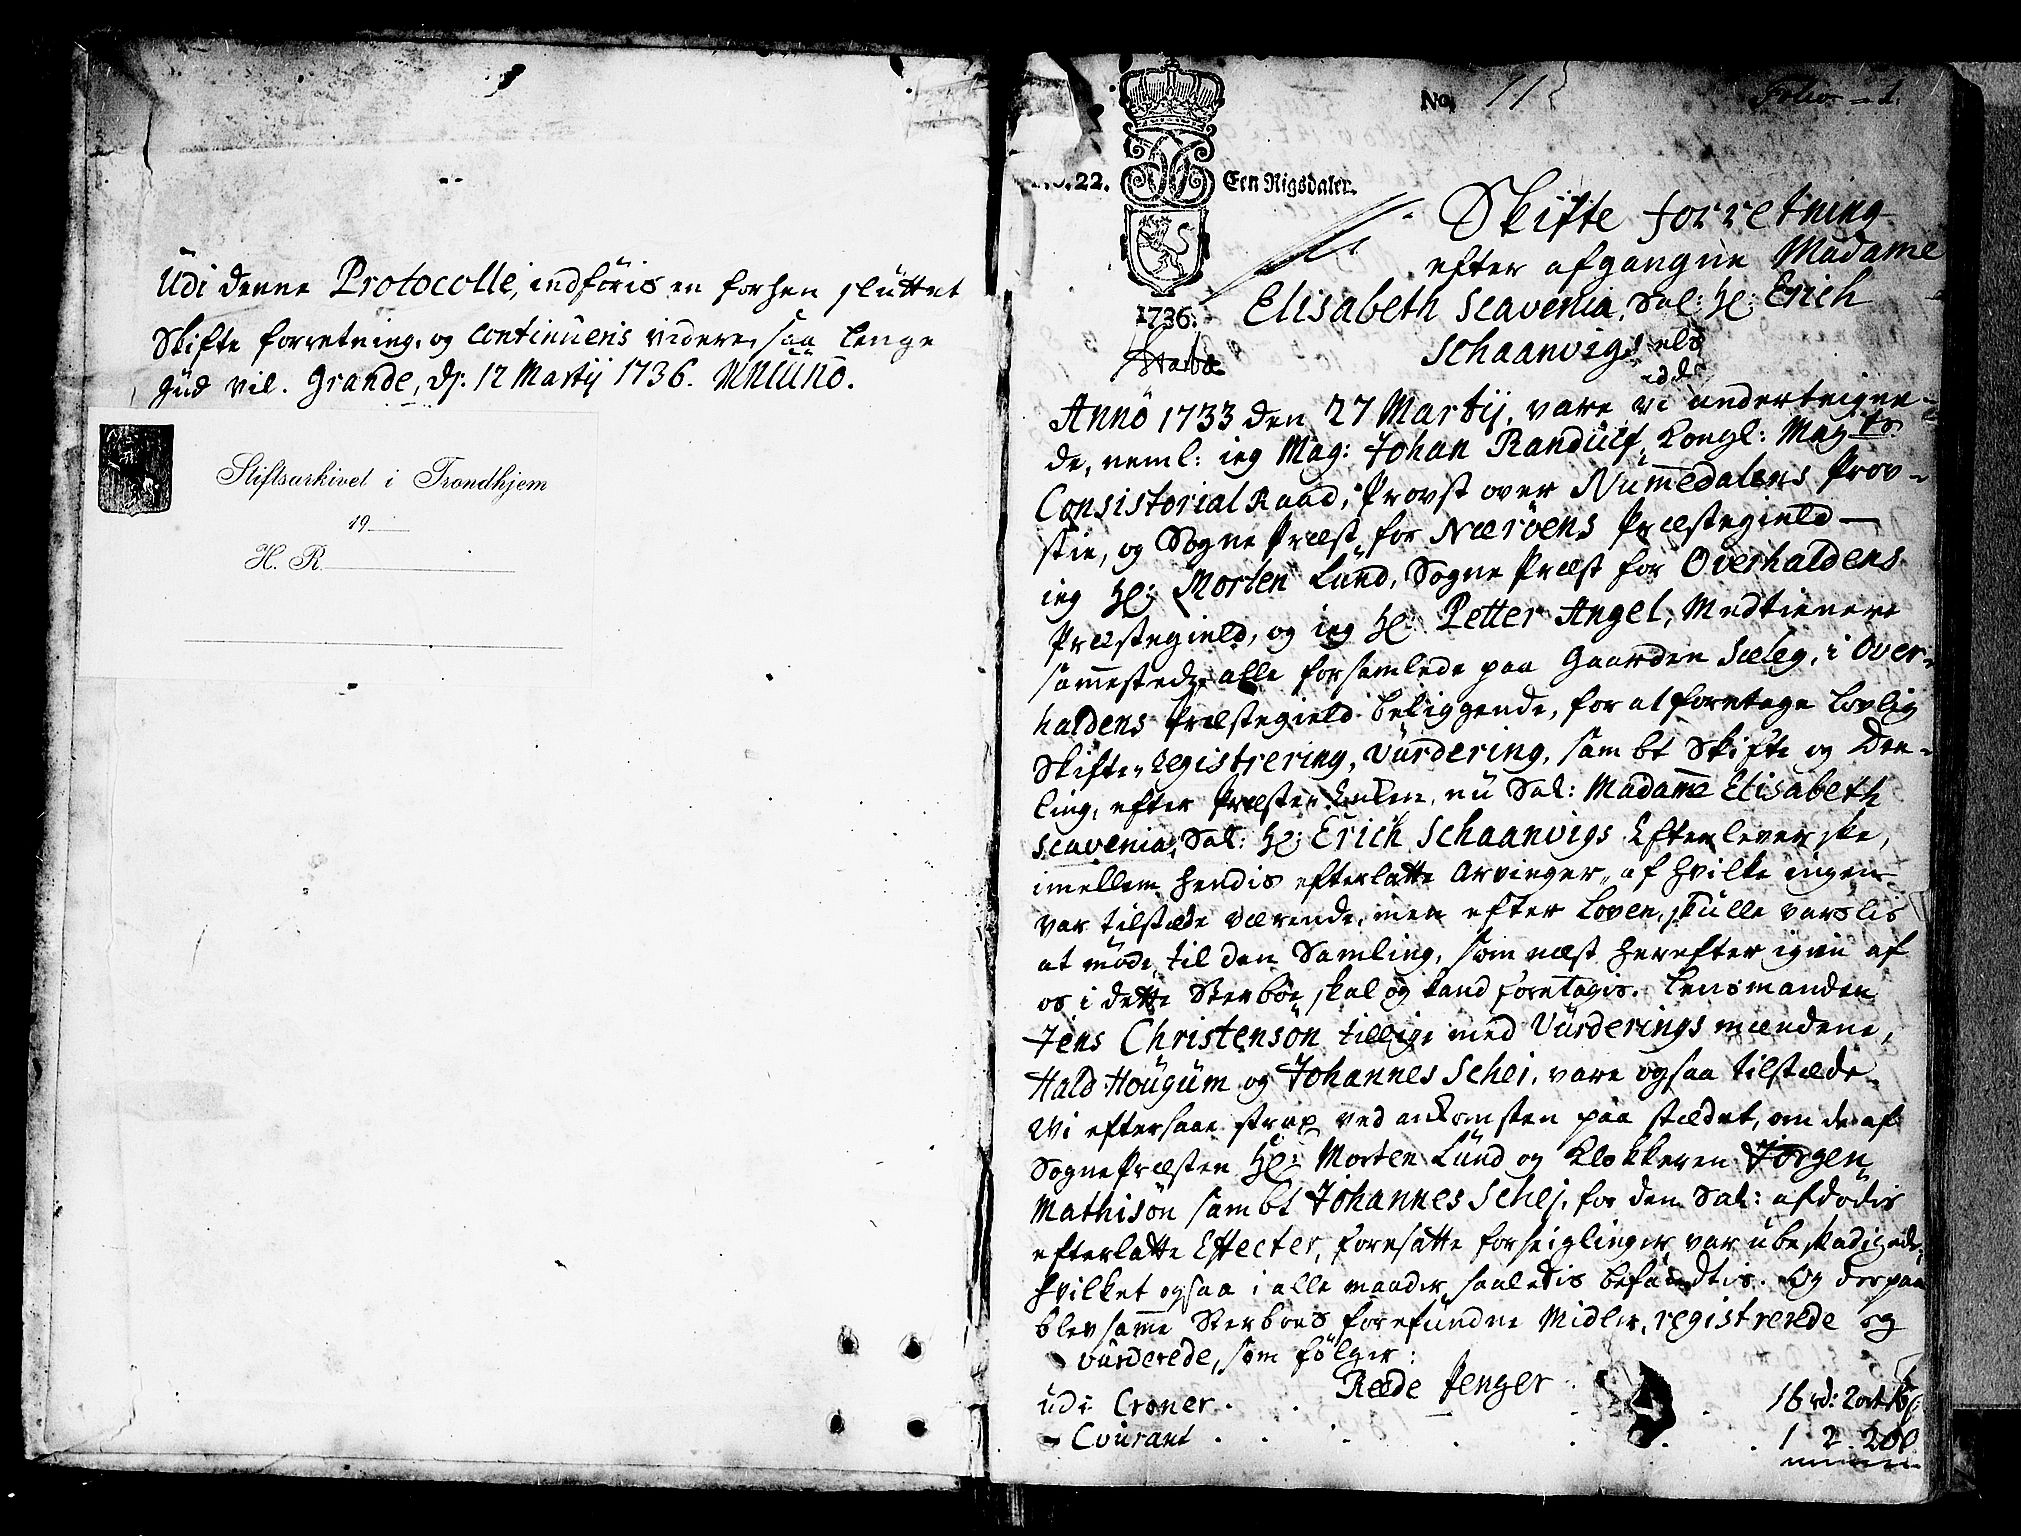 Udi denne Protocolle, indføris en forhen sluttet
Skifte forretning, og continueris videre, saa lenge
Gud vil. Grande, d: 12 Martij 1736.
Stiftsarkivet i Trondhjem
19
H. R.
No. 11
Folio - 1.
No. 22. Een Rigsdaler.
1736.
Skifte forretning
efter afgangne Madame
Elisabeth Scavenia, Sal: Hr: Erich
Schaanvigs
Anno 1733 den 27 Martij, vare vi underteigne-
de, neml: ieg Mag: Johan Randulf, Kongl: Mayts
Consistorial Raad, Provst over Nummedalens Prov-
stie, og Sogne Præst for Nærøens Præstegield
ieg Hr: Morten Lund, Sogne Præst for Overhaldens
Præstegield, og ieg Hr: Petter Angel, Medtienere
sammestedz alle forsamlede paa Gaarden Sæleg, i Over-
haldens Præstegield beliggende, for at foretage Lovlig
Skifte, registrering, Vurdering, sambt Skifte og Dee-
ling, efter Præste Enken, nu Sal: Madamme Elisabeth
Scavenia, Sal: Hr: Erich Schaanvigs Efterleverske,
imellem hendis efterlatte Arvinger, af hvilke ingen
var tilstæde værende, men efter Loven, skulle varslis
at møde til den Samling, som næst herefter igien af
os i dette Sterboe skal og kand foretagis. Lensmanden
Jens Christensøn tillige med Vurderings mændene,
Hald Hougum og Johannes Schei, vare ogsaa tilstæde.
Vi eftersaae strax ved ankomsten paa stædet, om de af
Sogne Præsten Hr: Morten Lund og Klokkeren Jørgen
Mathisøn sambt Johannes Schej, for den Sal: afdødis
efterlatte Effecter, foresatte forseiglinger var ubeskadigede,
hvilket ogsaa i alle maader saaledis befandtis. Og derpaa
blev samme Sterboes forefundne Midler, registrerede og
vurderede, som følger:
Rede Penger
udi Croner . . . 16 rd: 2 ort
- Courant . . . 1 2 20